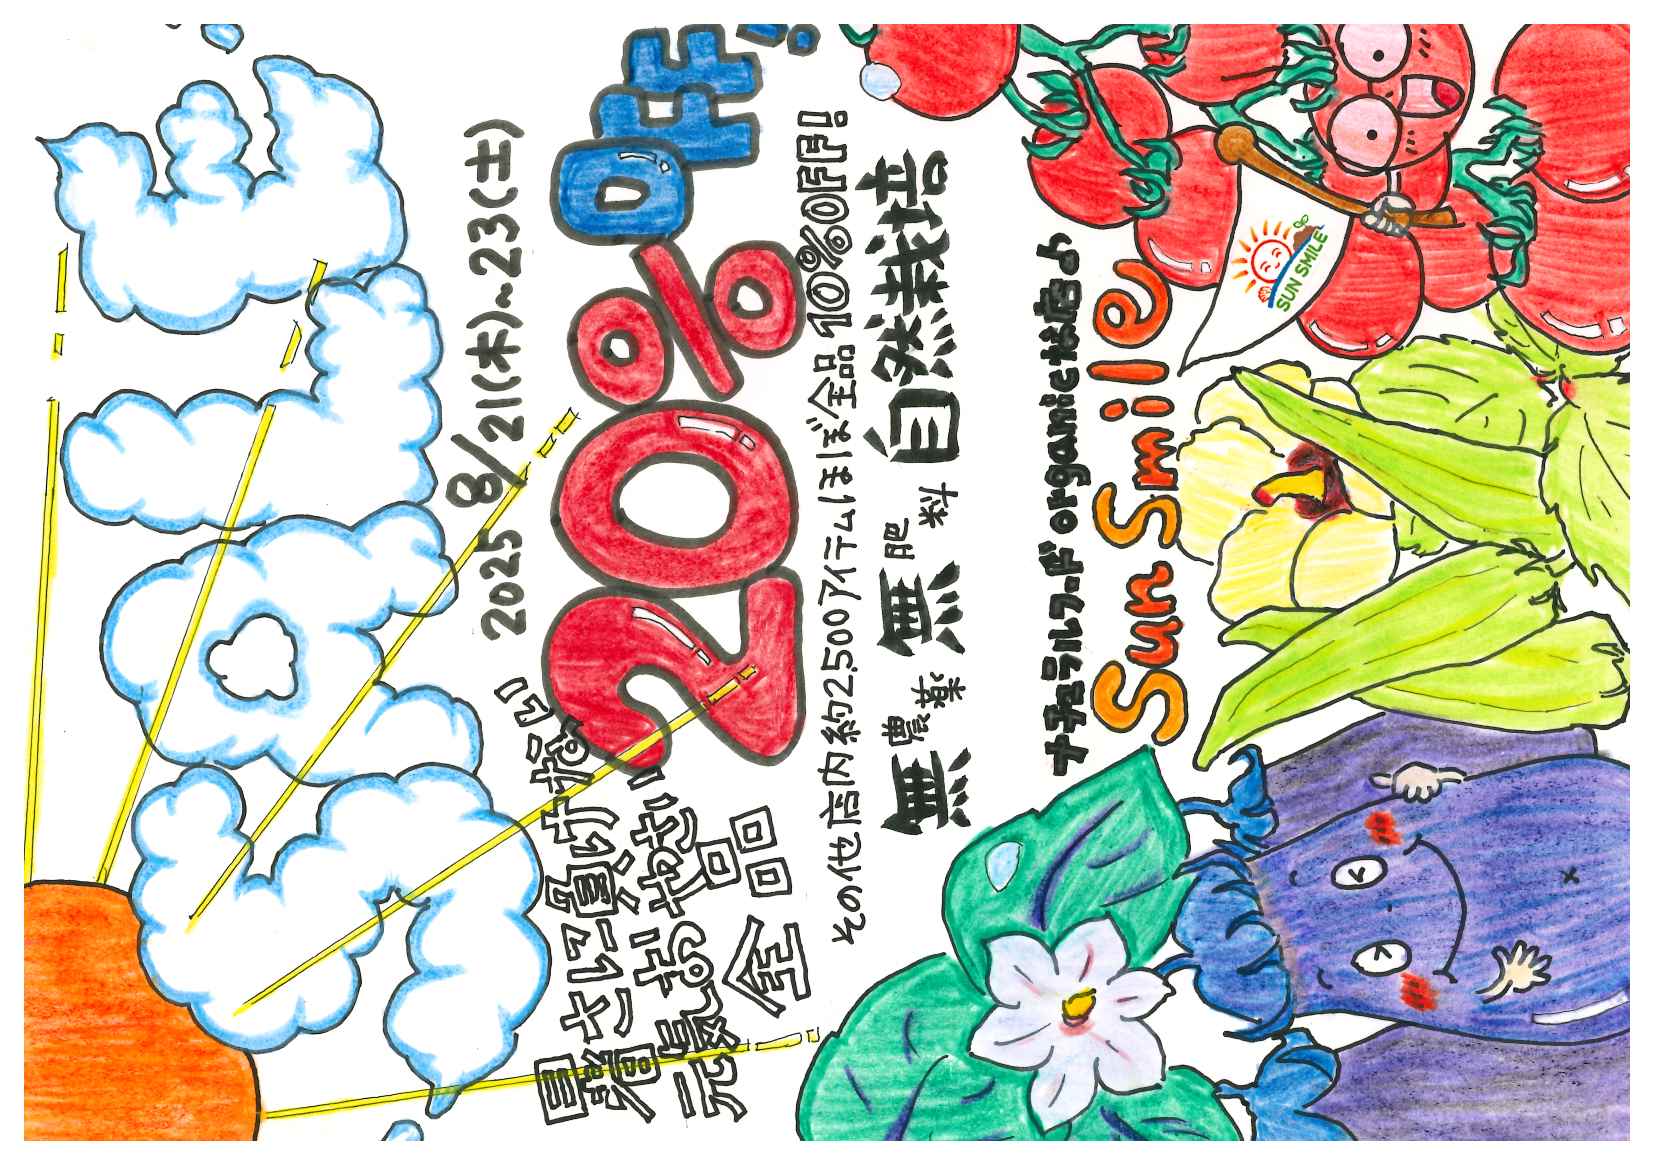 SALE
2025 8/21(木)~23(土)
暑さに負けない
元気おやさい
全品
20%OFF!
その他店内約2,500アイテムほぼ全品10%OFF!
無農薬 無肥料 自然栽培
ナチュラルフードorganicお店♪
Sun Smile
SUN SMILE